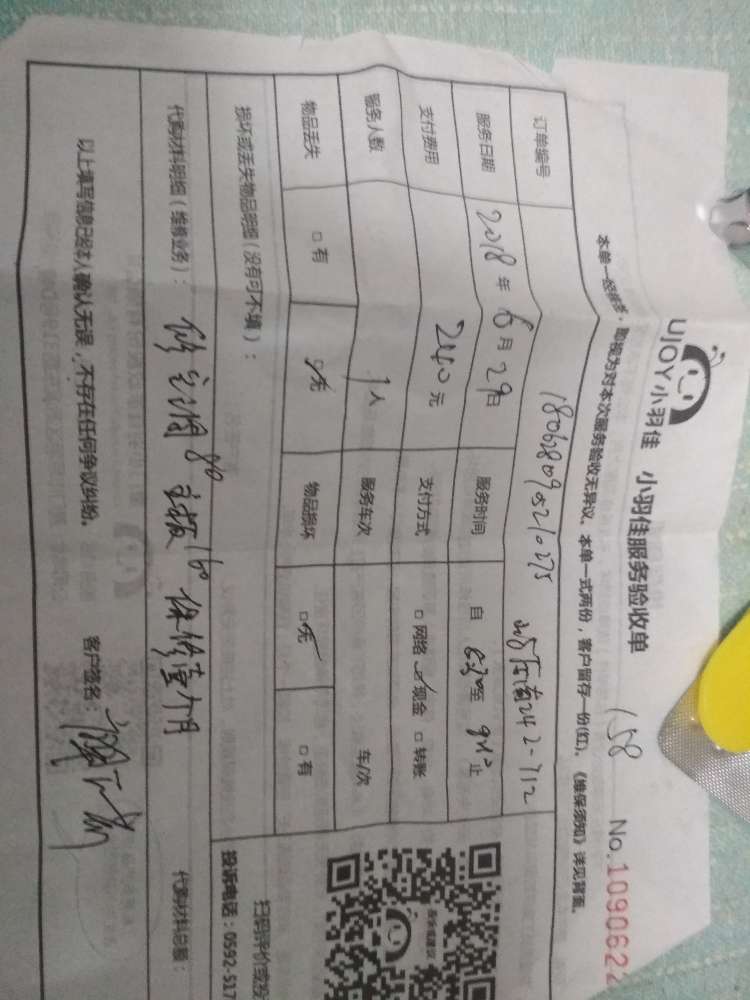 UJOY小羽佳 小羽佳服务验收单 158 No.1090622
本单一经 即视为对本次服务验收无异议。本单一式两份，客户留存一份(红)。《维保须知》详见背面。
订单编号 180680905210275 242-712
服务日期 2018年6月29日 服务时间 自 至 止
支付费用 元 支付方式 □网络 ☑现金 □转账
服务人数 1人 服务车次 车/次
物品丢失 □有 ☑无 物品损坏 ☑无 □有
损坏或丢失物品明细（没有可不填）：
扫码评价或投
投诉电话：0592-517
代购材料明细（维修业务）： 修空调80 主板160 保修壹个月 代购材料总额：
以上填写信息已经本人确认无误，不存在任何争议纠纷。 客户签名：